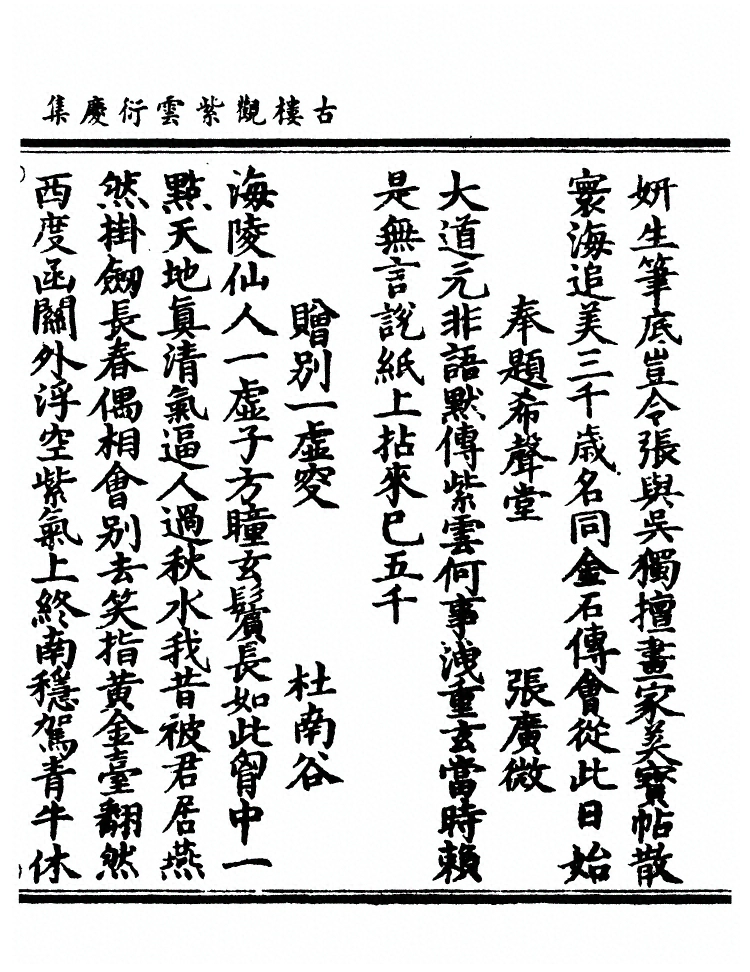 古樓觀紫雲衍慶集
妍生筆底豈令張與吳獨擅畫家美寶帖散
寰海追美三千歲名同金石傳會從此日始
奉題希聲堂 張廣微
大道元非語默傳紫雲何事洩重玄當時賴
是無言說紙上拈來已五千
贈別一虛叟 杜南谷
海陵仙人一虛子方瞳玄鬢長如此胷中一
點天地眞清氣逼人過秋水我昔被君居燕
然掛劒長春偶相會別去笑指黃金臺翻然
西度函關外浮空紫氣上終南穩駕青牛休